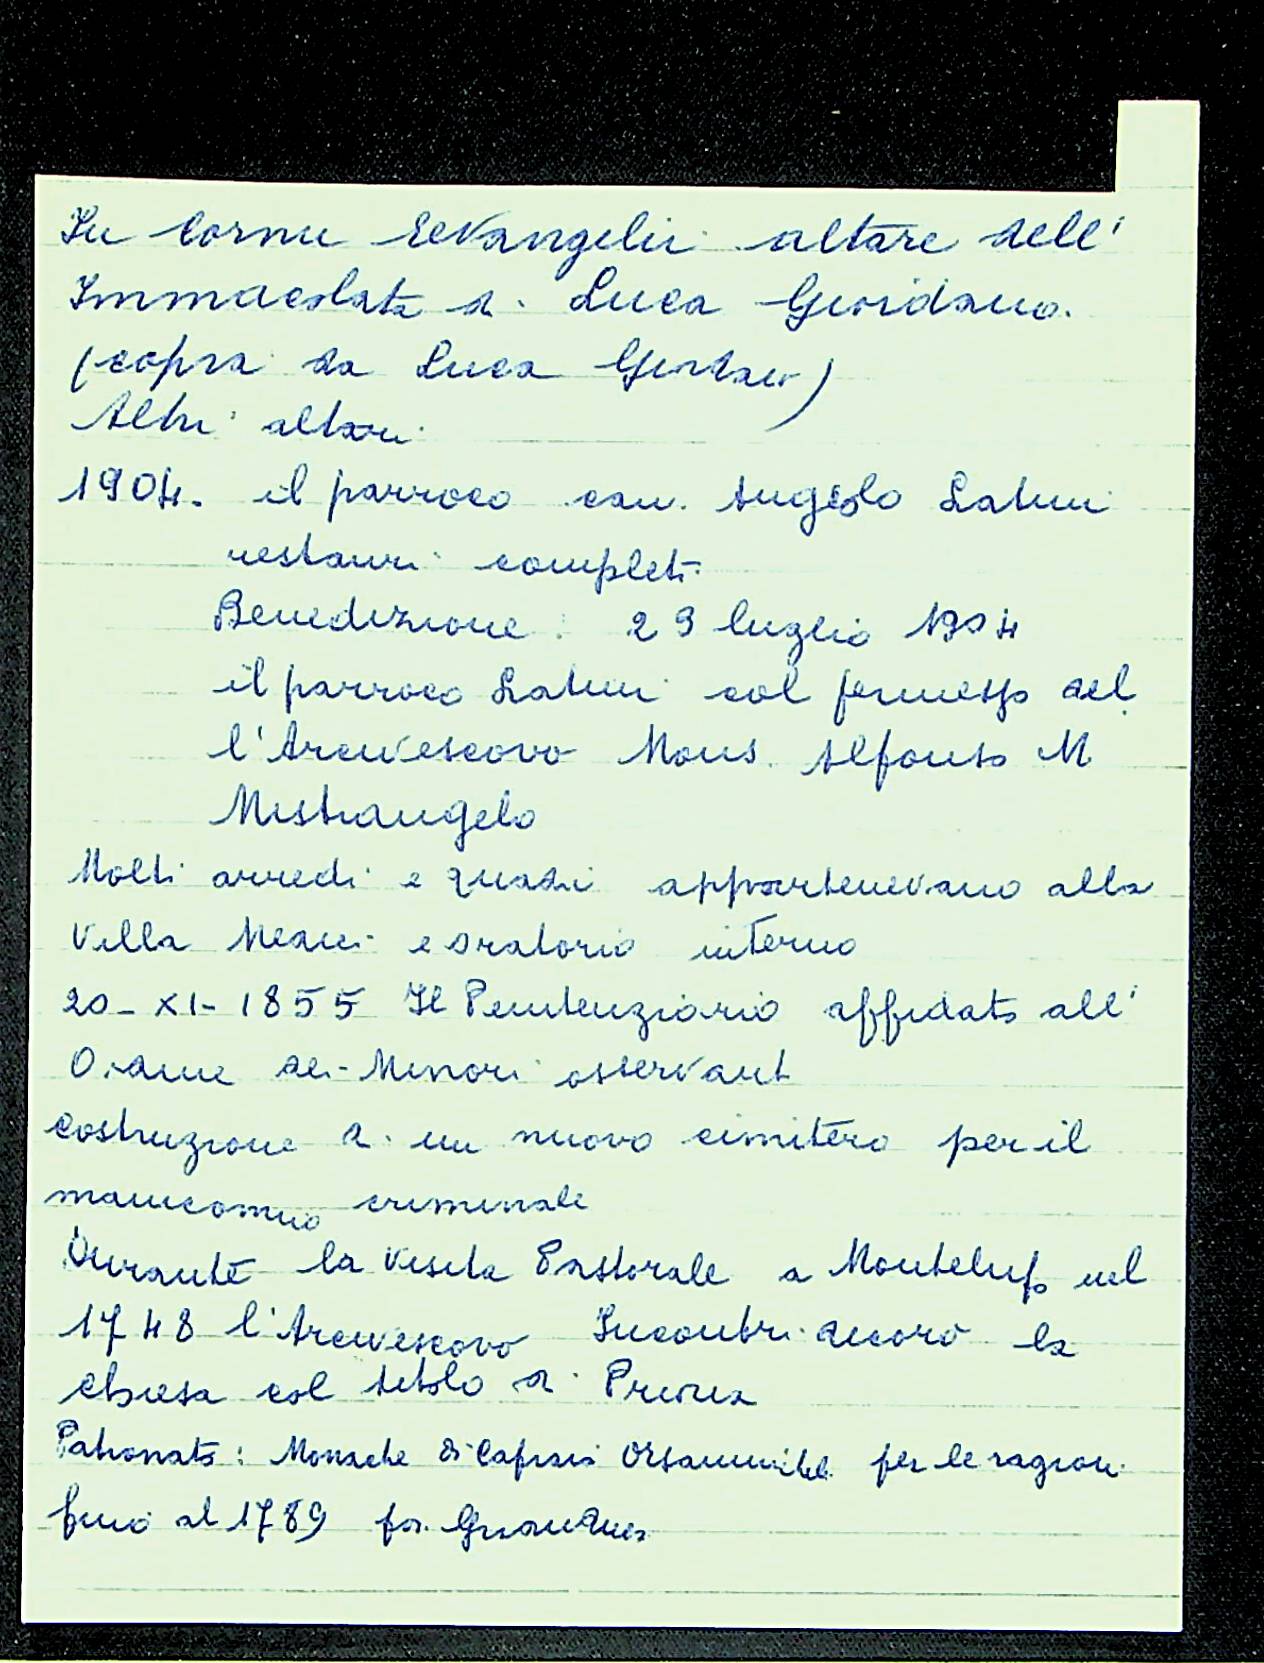 In Cornu Eevangelii altare dell'
Immacolata di Luca Giordano.
(copia da Luca Giordano)
Altri altari
1904. il parroco can. Angelo Latini
restauri completi
Benedizione: 29 luglio 1904
il parroco Latini col permesso del
l'Arcivescovo Mons. Alfonso M
Mistrangelo
Molti arredi e quadri appartenevano alla
Villa Mezici e oratorio interno
20-XI-1855 Il Penitenziario affidato all'
Ordine dei Minori osservanti
costruzione di un nuovo cimitero per il
manicomio criminale
Durante la visita Pastorale a Montelupo nel
1748 l'Arcivescovo Incontri decorò la
chiesa col titolo di Prioria
Patronato: Monache di per le ragioni
fino al 1789 poi Granduca